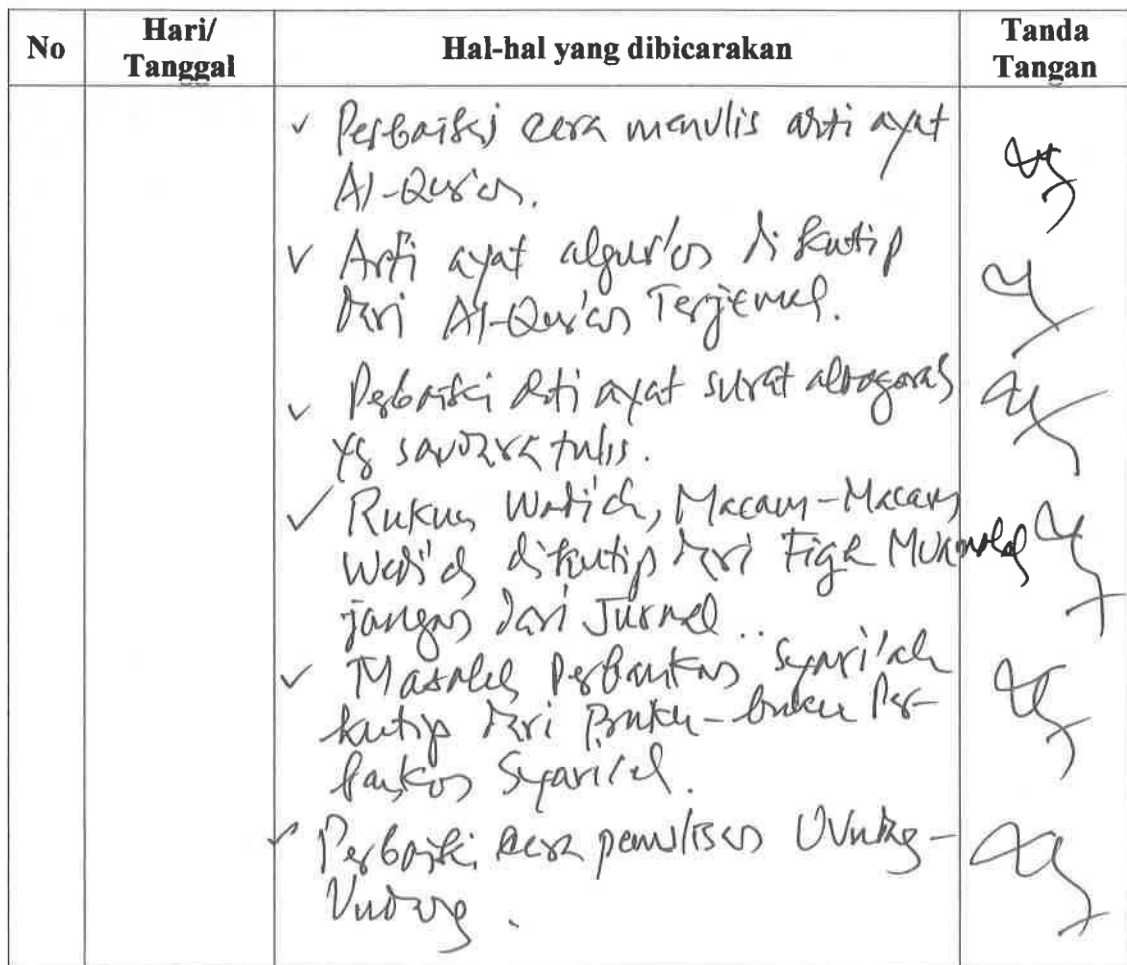 No
Hari/
Tanggal
Hal-hal yang dibicarakan
Tanda
Tangan
✓ Perbaiki cara menulis arti ayat
Al-Qur'an.
✓ Arti ayat alqur'an di kutip
dari Al-Qur'an Terjemah.
✓ Perbaiki arti ayat surat albaqarah
yg saudara tulis.
✓ Rukun Wadi'ah, Macam-Macam
Wadi'ah dikutip dari Fiqh Muamalah
jangan dari Jurnal
✓ Masalah Perbankan Syari'ah
kutip dari Buku-buku Per-
bankan Syari'ah.
✓ Perbaiki cara penulisan Undang-
Undang.